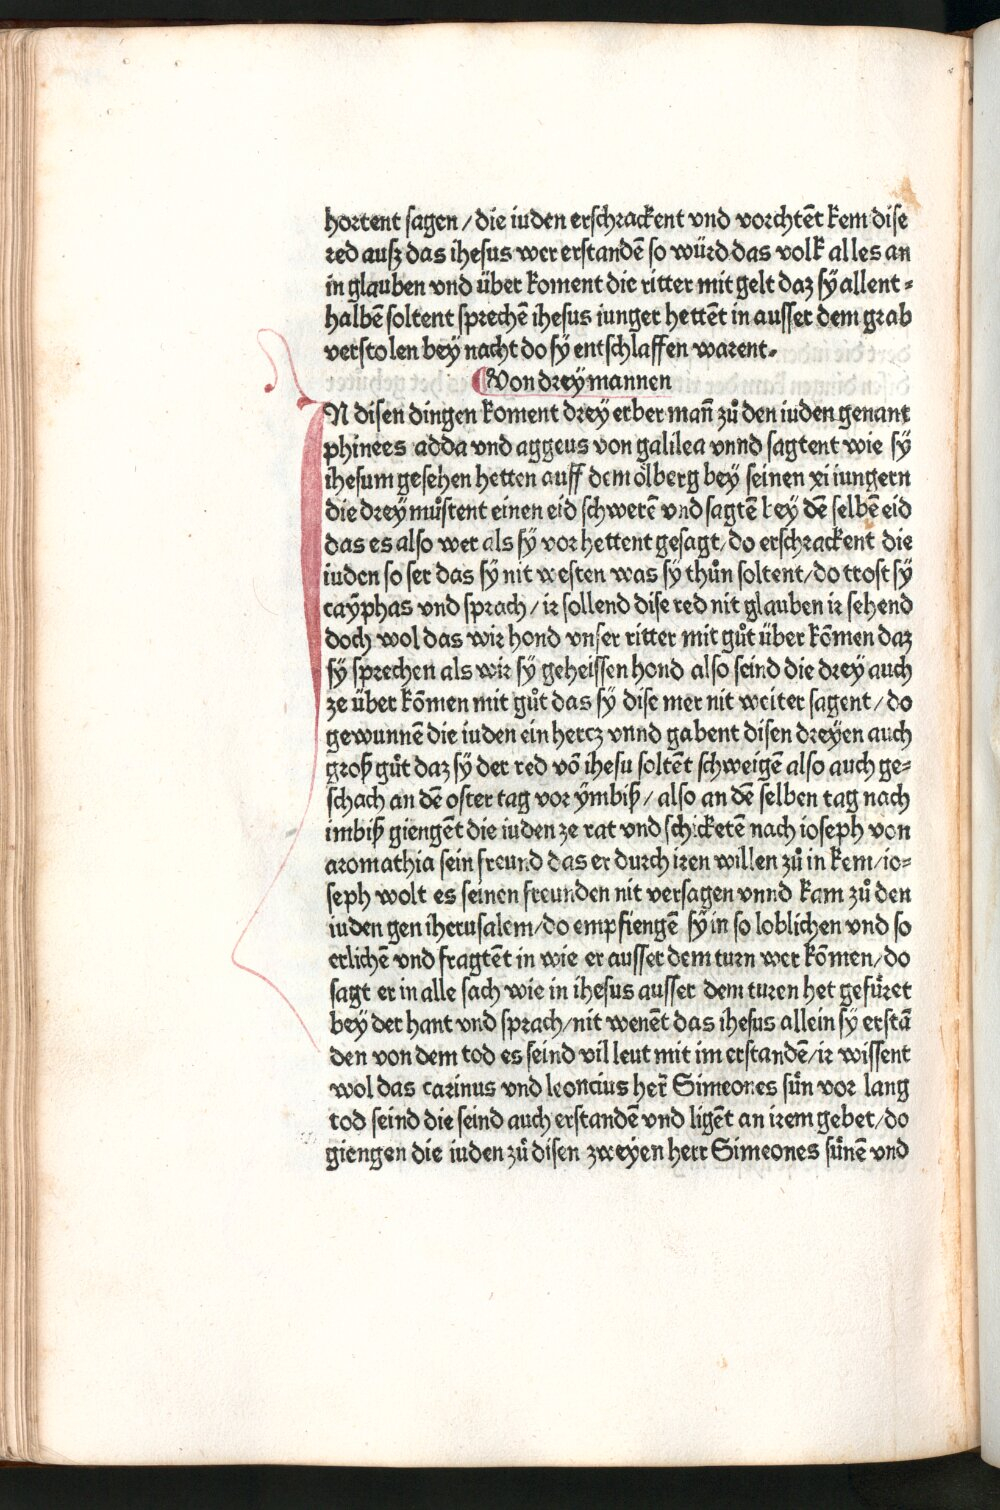 hortent sagen / die iuden erschrackent vnd vorchtēt kem dise
red ausz das ihesus wer erstandē so würd das volk alles an
in glauben vnd über koment die ritter mit gelt daz sÿ allent-
halbē soltent sprechē ihesus iunger hettēt in ausser dem grab
verstolen beÿ nacht do sÿ entschlaffen warent.
Von dreÿ mannen
IN disen dingen koment dreÿ erber man̄ zů den iuden genant
phinees adda vnd aggeus von galilea vnnd sagtent wie sÿ
ihesum gesehen hetten auff dem ölberg beÿ seinen xi iungern
die dreÿ můstent einen eid schwerē vnd sagtē beÿ dē selbē eid
das es also wer als sÿ vor hettent gesagt / do erschrackent die
iuden so ser das sÿ nit westen was sÿ thůn soltent / do trost sÿ
caÿphas vnd sprach / ir sollend dise red nit glauben ir sehend
doch wol das wir hond vnser ritter mit gůt über kōmen daz
sÿ sprechen als wir sÿ geheissen hond also seind die dreÿ auch
ze über kōmen mit gůt das sÿ dise mer nit weiter sagent / do
gewunnē die iuden ein hercz vnnd gabent disen dreÿen auch
groß gůt daz sÿ der red vō ihesu soltēt schweigē also auch ge-
schach an dē oster tag vor ÿmbiß / also an dē selben tag nach
imbiß giengēt die iuden ze rat vnd schicketē nach ioseph von
aromathia sein freund das er durch iren willen zů in kem / io-
seph wolt es seinen freunden nit versagen vnnd kam zů den
iuden gen iherusalem / do empfiengē sÿ in so loblichen vnd so
erlichē vnd fragtēt in wie er ausser dem turn wer kōmen / do
sagt er in alle sach wie in ihesus ausser dem turen het gefüret
beÿ der hant vnd sprach / nit wenēt das ihesus allein sÿ erstā
den von dem tod es seind vil leut mit im erstandē / ir wissent
wol das carinus vnd leoncius her̄ Simeones sün vor lang
tod seind die seind auch erstandē vnd ligēt an irem gebet / do
giengen die iuden zů disen zweÿen herr Simeones sünē vnd